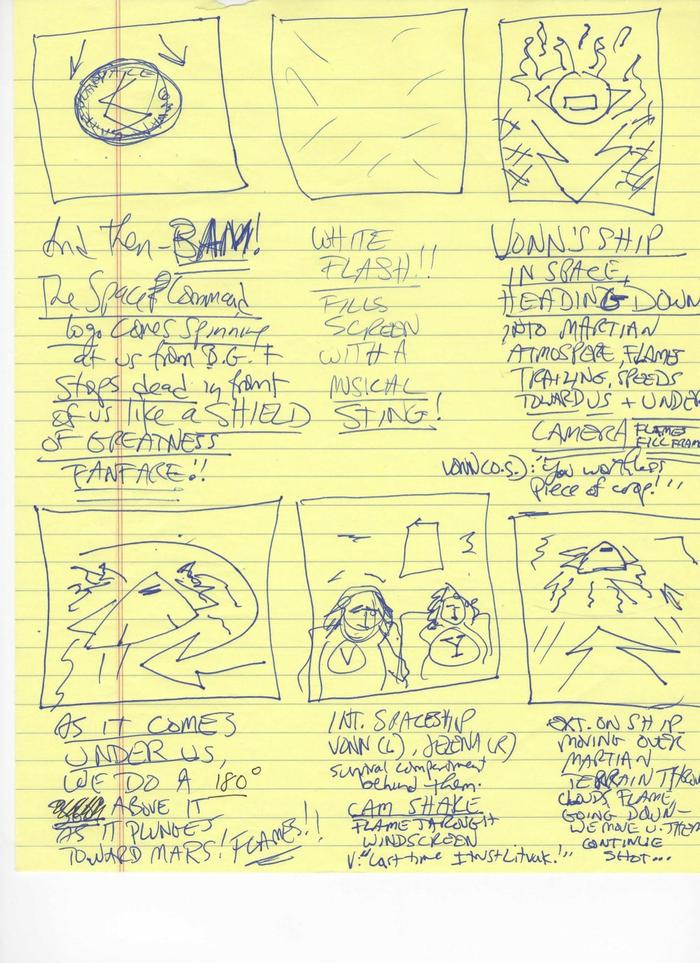 And then - BAM!
The Space Command
logo comes spinning
at us from B.G. +
stops dead in front
of us like a SHIELD
OF GREATNESS
FANFARE!!
WHITE
FLASH!!
FILLS
SCREEN
WITH A
MUSICAL
STING!
VONN'S SHIP
IN SPACE,
HEADING DOWN
INTO MARTIAN
ATMOSPERE, FLAMES
TRAILING, SPEEDS
TOWARD US + UNDER
CAMERA FLAMES
FILL FRAM
VONN (O.S.): "You worthless
piece of crap!"
AS IT COMES
UNDER US,
WE DO A 180°
ABOVE IT
AS IT PLUNGES
TOWARD MARS! FLAMES!!
V
Y
INT. SPACESHIP
VONN (L), JEZENA (R)
survival compartment
behind them.
CAM SHAKE
FLAME THROUGH
WINDSCREEN
V: "Last time I trust Litvak!"
EXT. ON SHIP
MOVING OVER
MARTIAN
TERRAIN THROU
CLOUDS, FLAME,
GOING DOWN—
WE MOVE U. THEM
CONTINUE
SHOT...